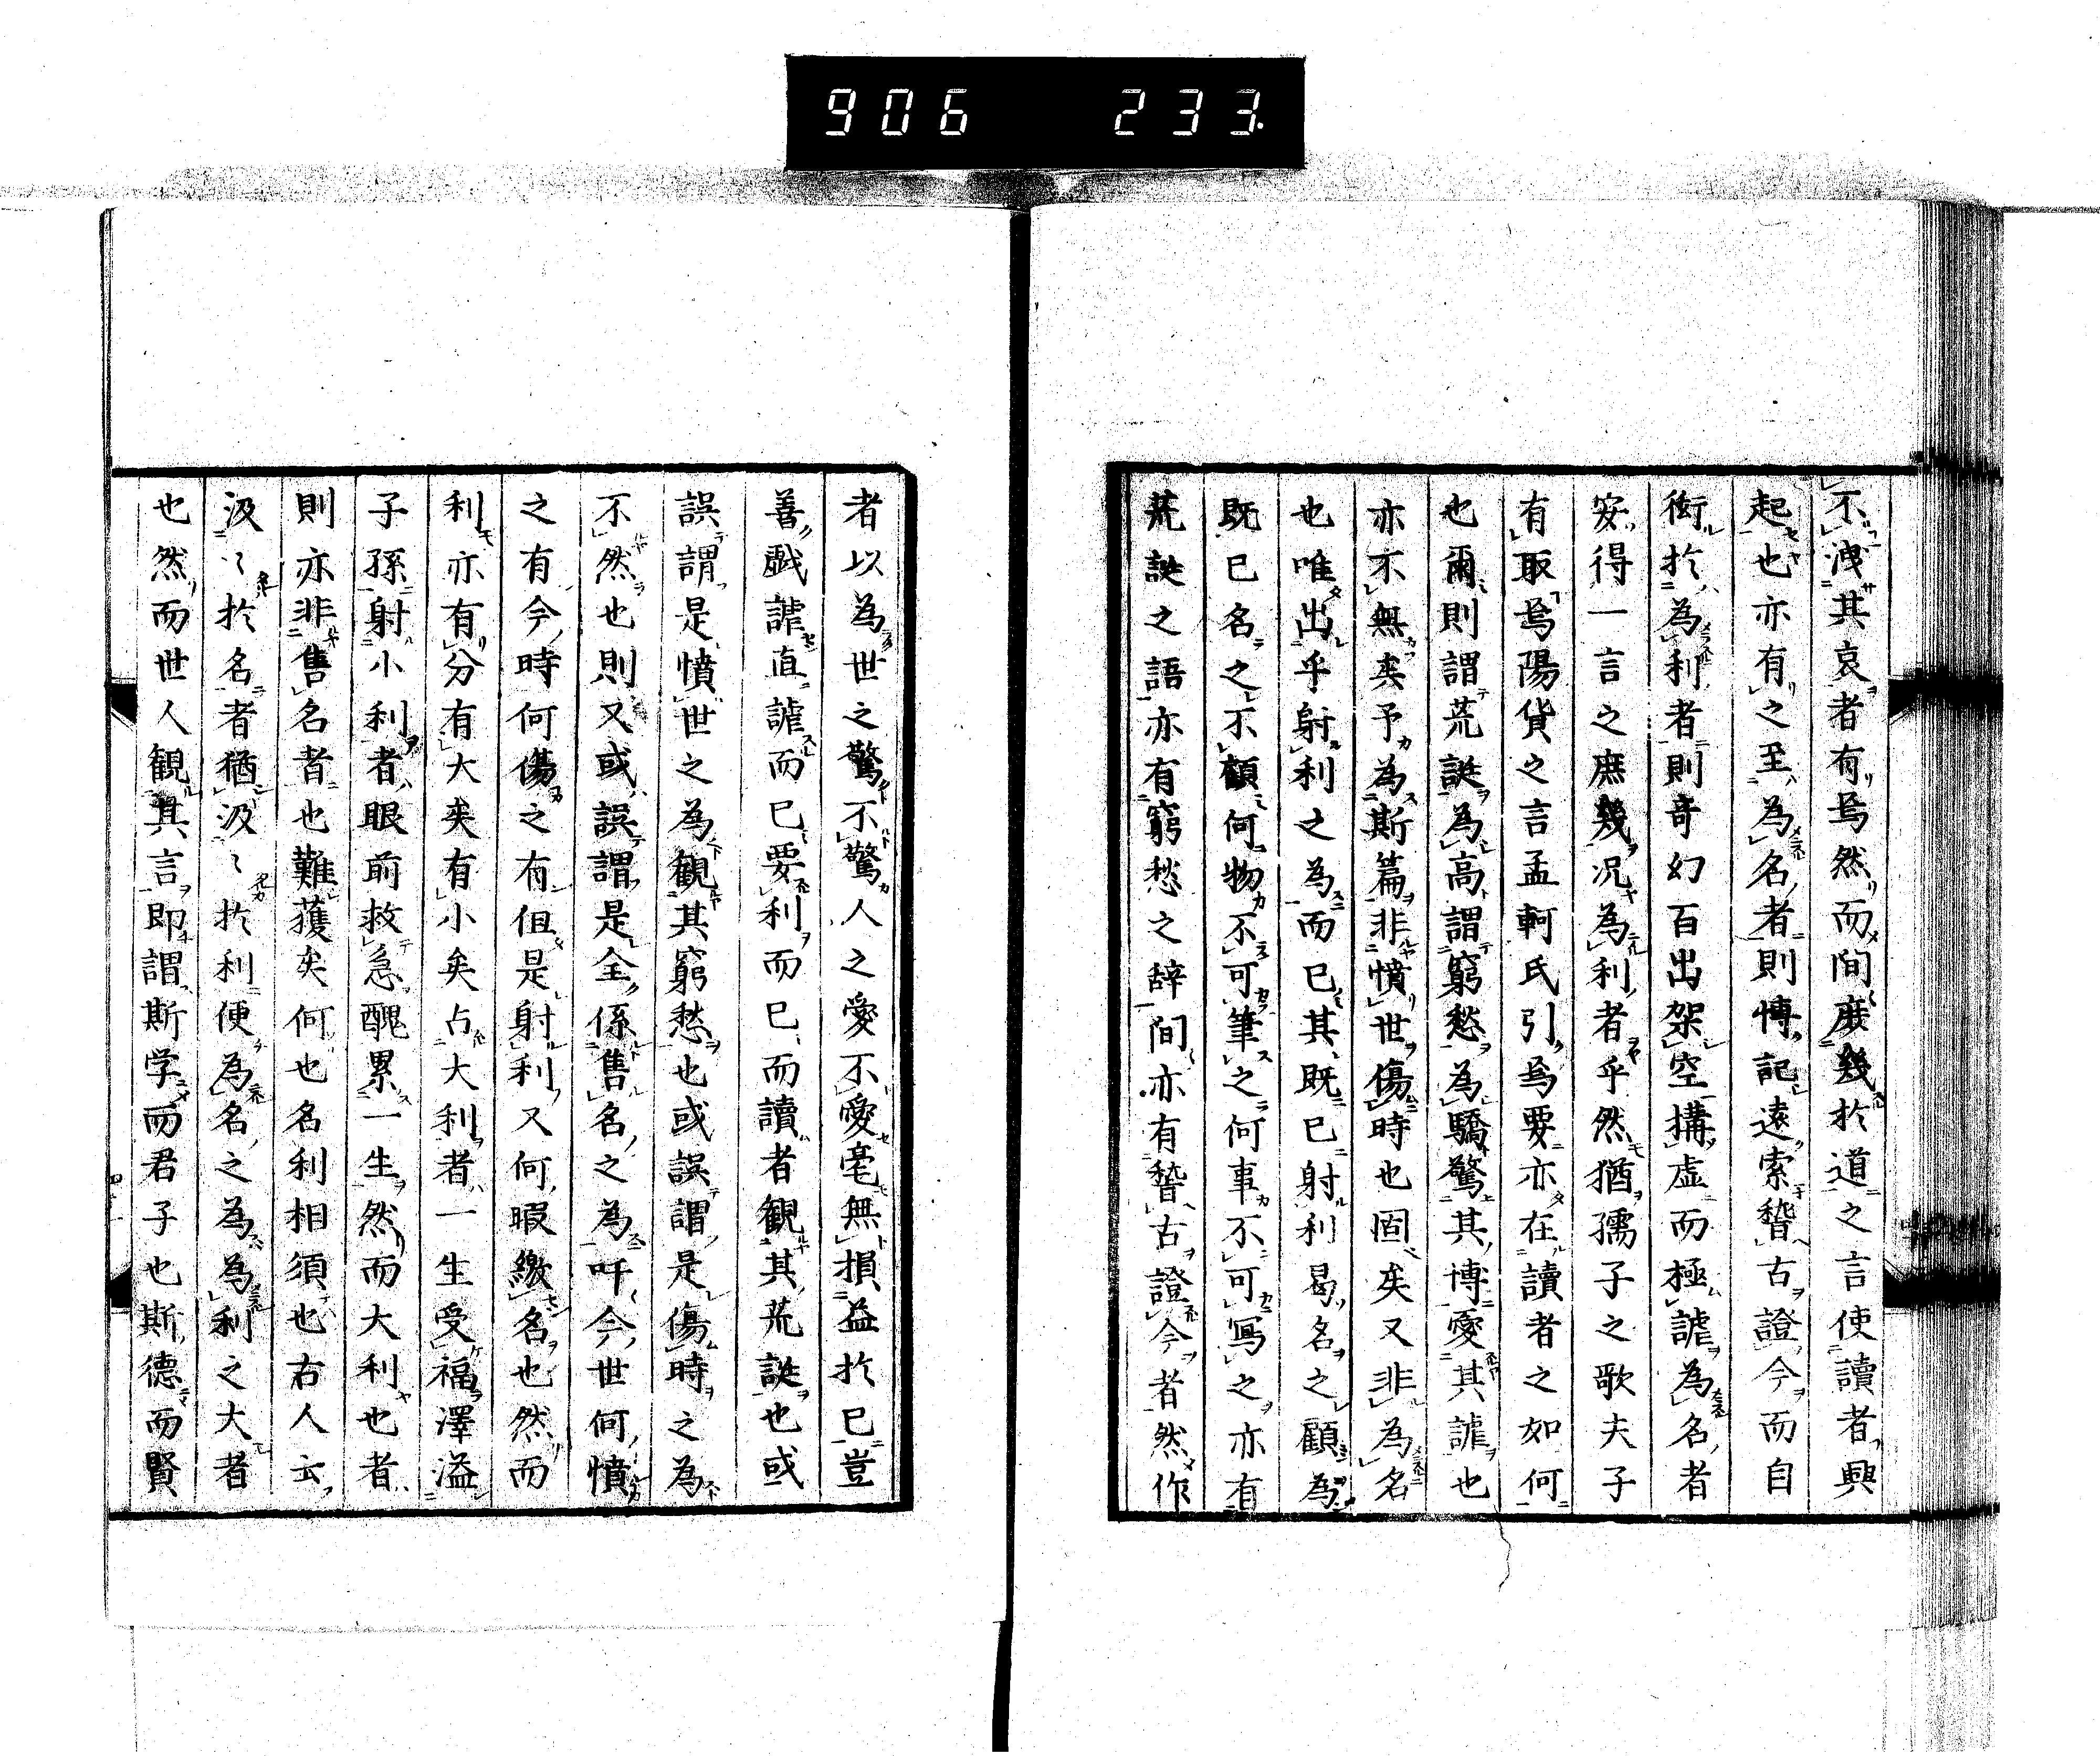 906 233.
不洩其哀者有焉然而間庶幾於道之言使讀者興
起也亦有之至為名者則博記遠索稽古證今而自
衒於為利者則奇幻百出架空搆虚而極謔為名者
安得一言之庶幾況為利者乎然猶孺子之歌夫子
有取焉陽貨之言孟軻氏引焉要亦在讀者之如何
也爾則謂荒誕為高謂窮愁為驕驚其博愛其謔也
亦不無矣予為斯篇非憤世傷時也固矣又非為名
也唯出乎射利之為而已其既已射利曷名之顧為
既已名之不顧何物不可筆之何事不可寫之亦有
荒誕之語亦有窮愁之辞間亦有稽古證今者然作
者以為世之驚不驚人之愛不愛毫無損益於已豈
善戯謔直謔而已要利而已而讀者観其荒誕也或
誤謂是憤世之為観其窮愁也或誤謂是傷時之為
不然也則又或誤謂是全係售名之為吁今世何憤
之有今時何傷之有但是射利又何暇繳名也然而
利亦有分有大矣有小矣占大利者一生受福澤溢
子孫射小利者眼前救急醜累一生然而大利也者
則亦非售名者也難獲矣何也名利相須也右人云
汲〻於名者猶汲〻於利便為名之為為利之大者
也然而世人観其言即謂斯学而君子也斯德而賢